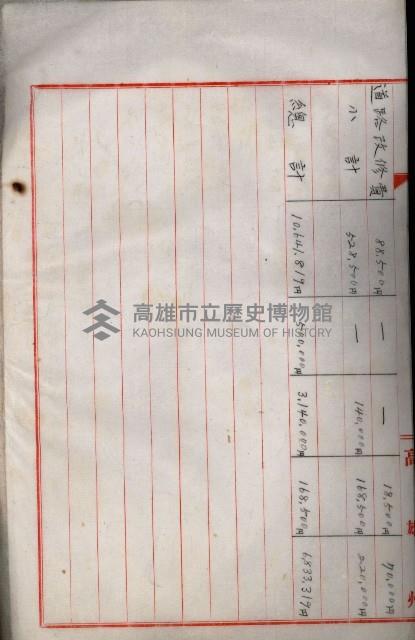 道路改修費 88,500円 — — 18,500円 70,000円
小計 528,500円 — 140,000円 168,500円 220,000円
總計 10,641,819円 500,000円 3,140,000円 168,500円 6,833,319円
高雄州
高雄市立歷史博物館
KAOHSIUNG MUSEUM OF HISTORY